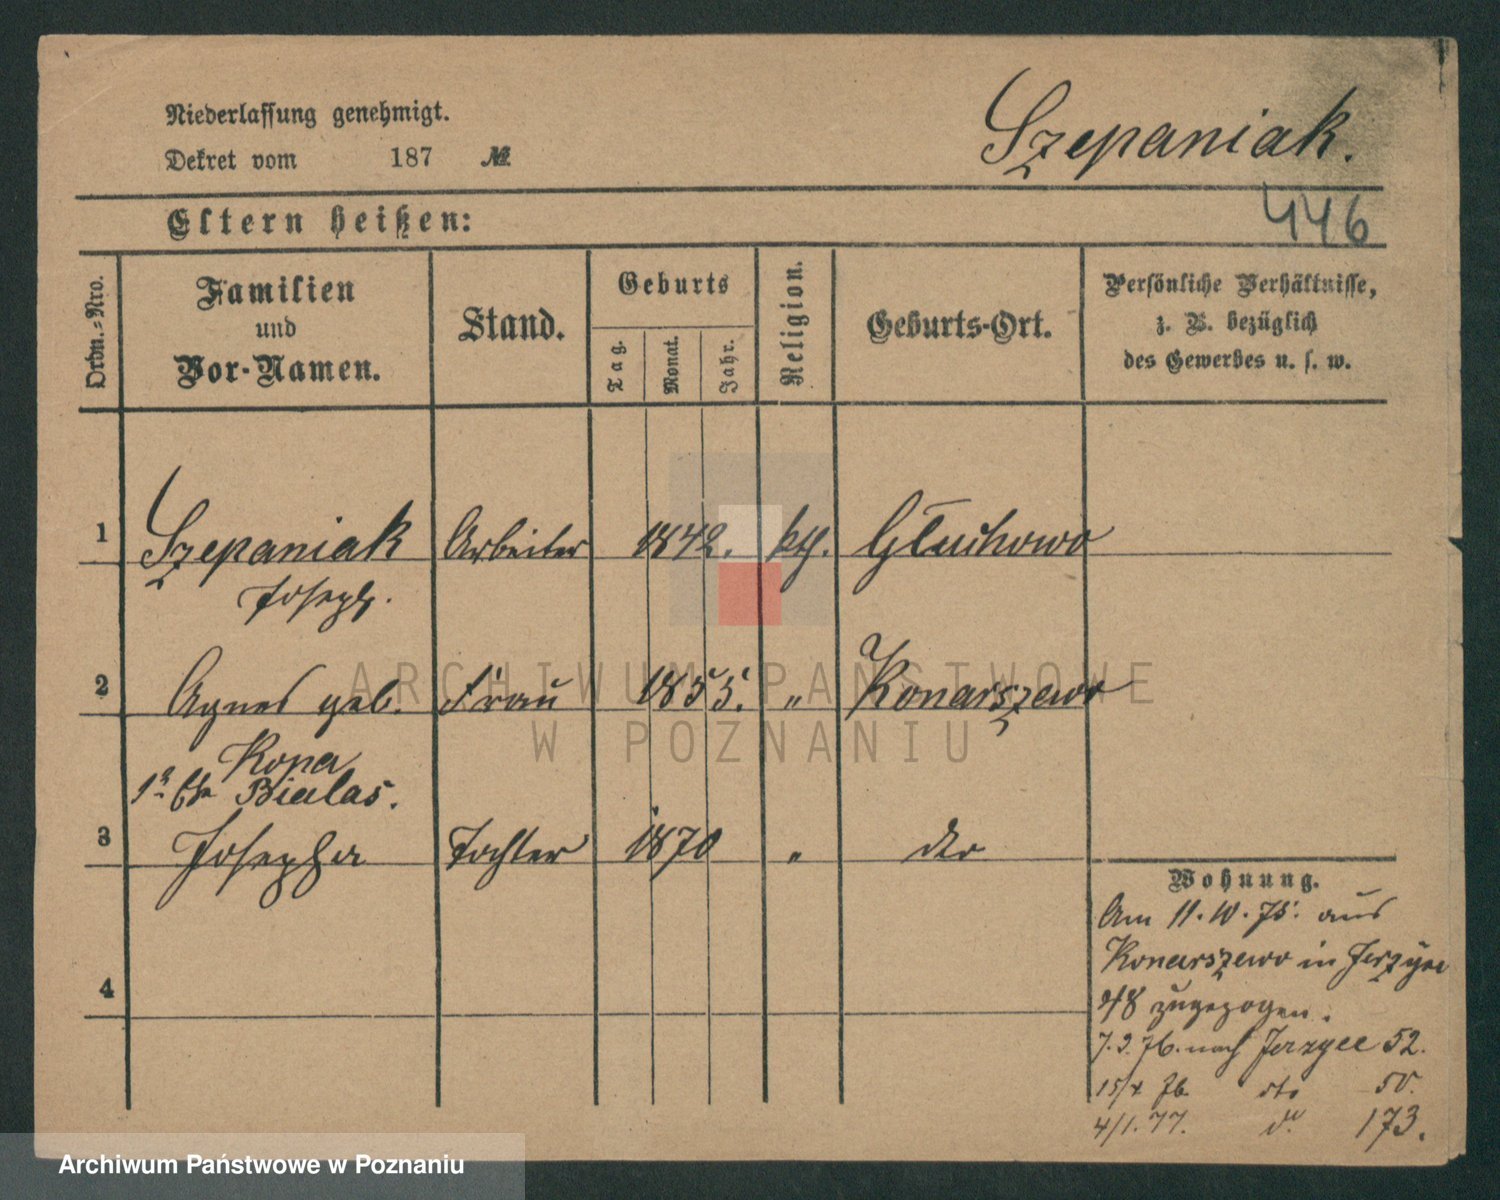 Niederlassung genehmigt.
Dekret vom 187 №
Szepaniak.
446
Eltern heißen:
Ordn.-Nro.
Familien
und
Vor-Namen.
Stand.
Geburts
Tag.
Monat.
Jahr.
Religion.
Geburts-Ort.
Persönliche Verhältnisse,
z. B. bezüglich
des Gewerbes u. s. w.
1 Szepaniak Arbeiter 1842. kth. Głuchowo
Joseph.
2 Agnes geb. Frau 1855. " Konarszewo
Kopa
Bialas.
3 Josepha Tochter 1870 " dto
4
Wohnung.
Am 11. 10. 75. aus
Konarszewo in Jerzyce
48 zugezogen.
7.3.76. nach Jerzyce 52.
15/4 76. dto 50.
4/1.77. do 173.
ARCHIWUM PAŃSTWOWE
W POZNANIU
Archiwum Państwowe w Poznaniu